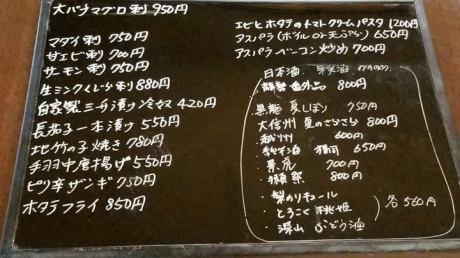 大バチマグロ刺 950円
マダイ刺 750円
甘エビ刺 700円
サーモン刺 750円
生ミンクくじら刺 880円
自家製三升漬け冷奴 420円
長茄子一本漬け 550円
地竹の子焼き 780円
手羽中唐揚げ 550円
ピリ辛ザンギ 750円
ホタテフライ 850円
エビとホタテのトマトクリームパスタ 1200円
アスパラ(ボイル or 天ぷら) 650円
アスパラベーコン炒め 700円
日本酒
番外品 800円
黒龍 夏しぼり 750円
大信州 夏のさらさら 800円
越州 600円
純米酒 650円
景虎 700円
獺祭 800円
・梨のリキュール
・とろこく 桃姫
・深山 ぶどう酒
各 560円